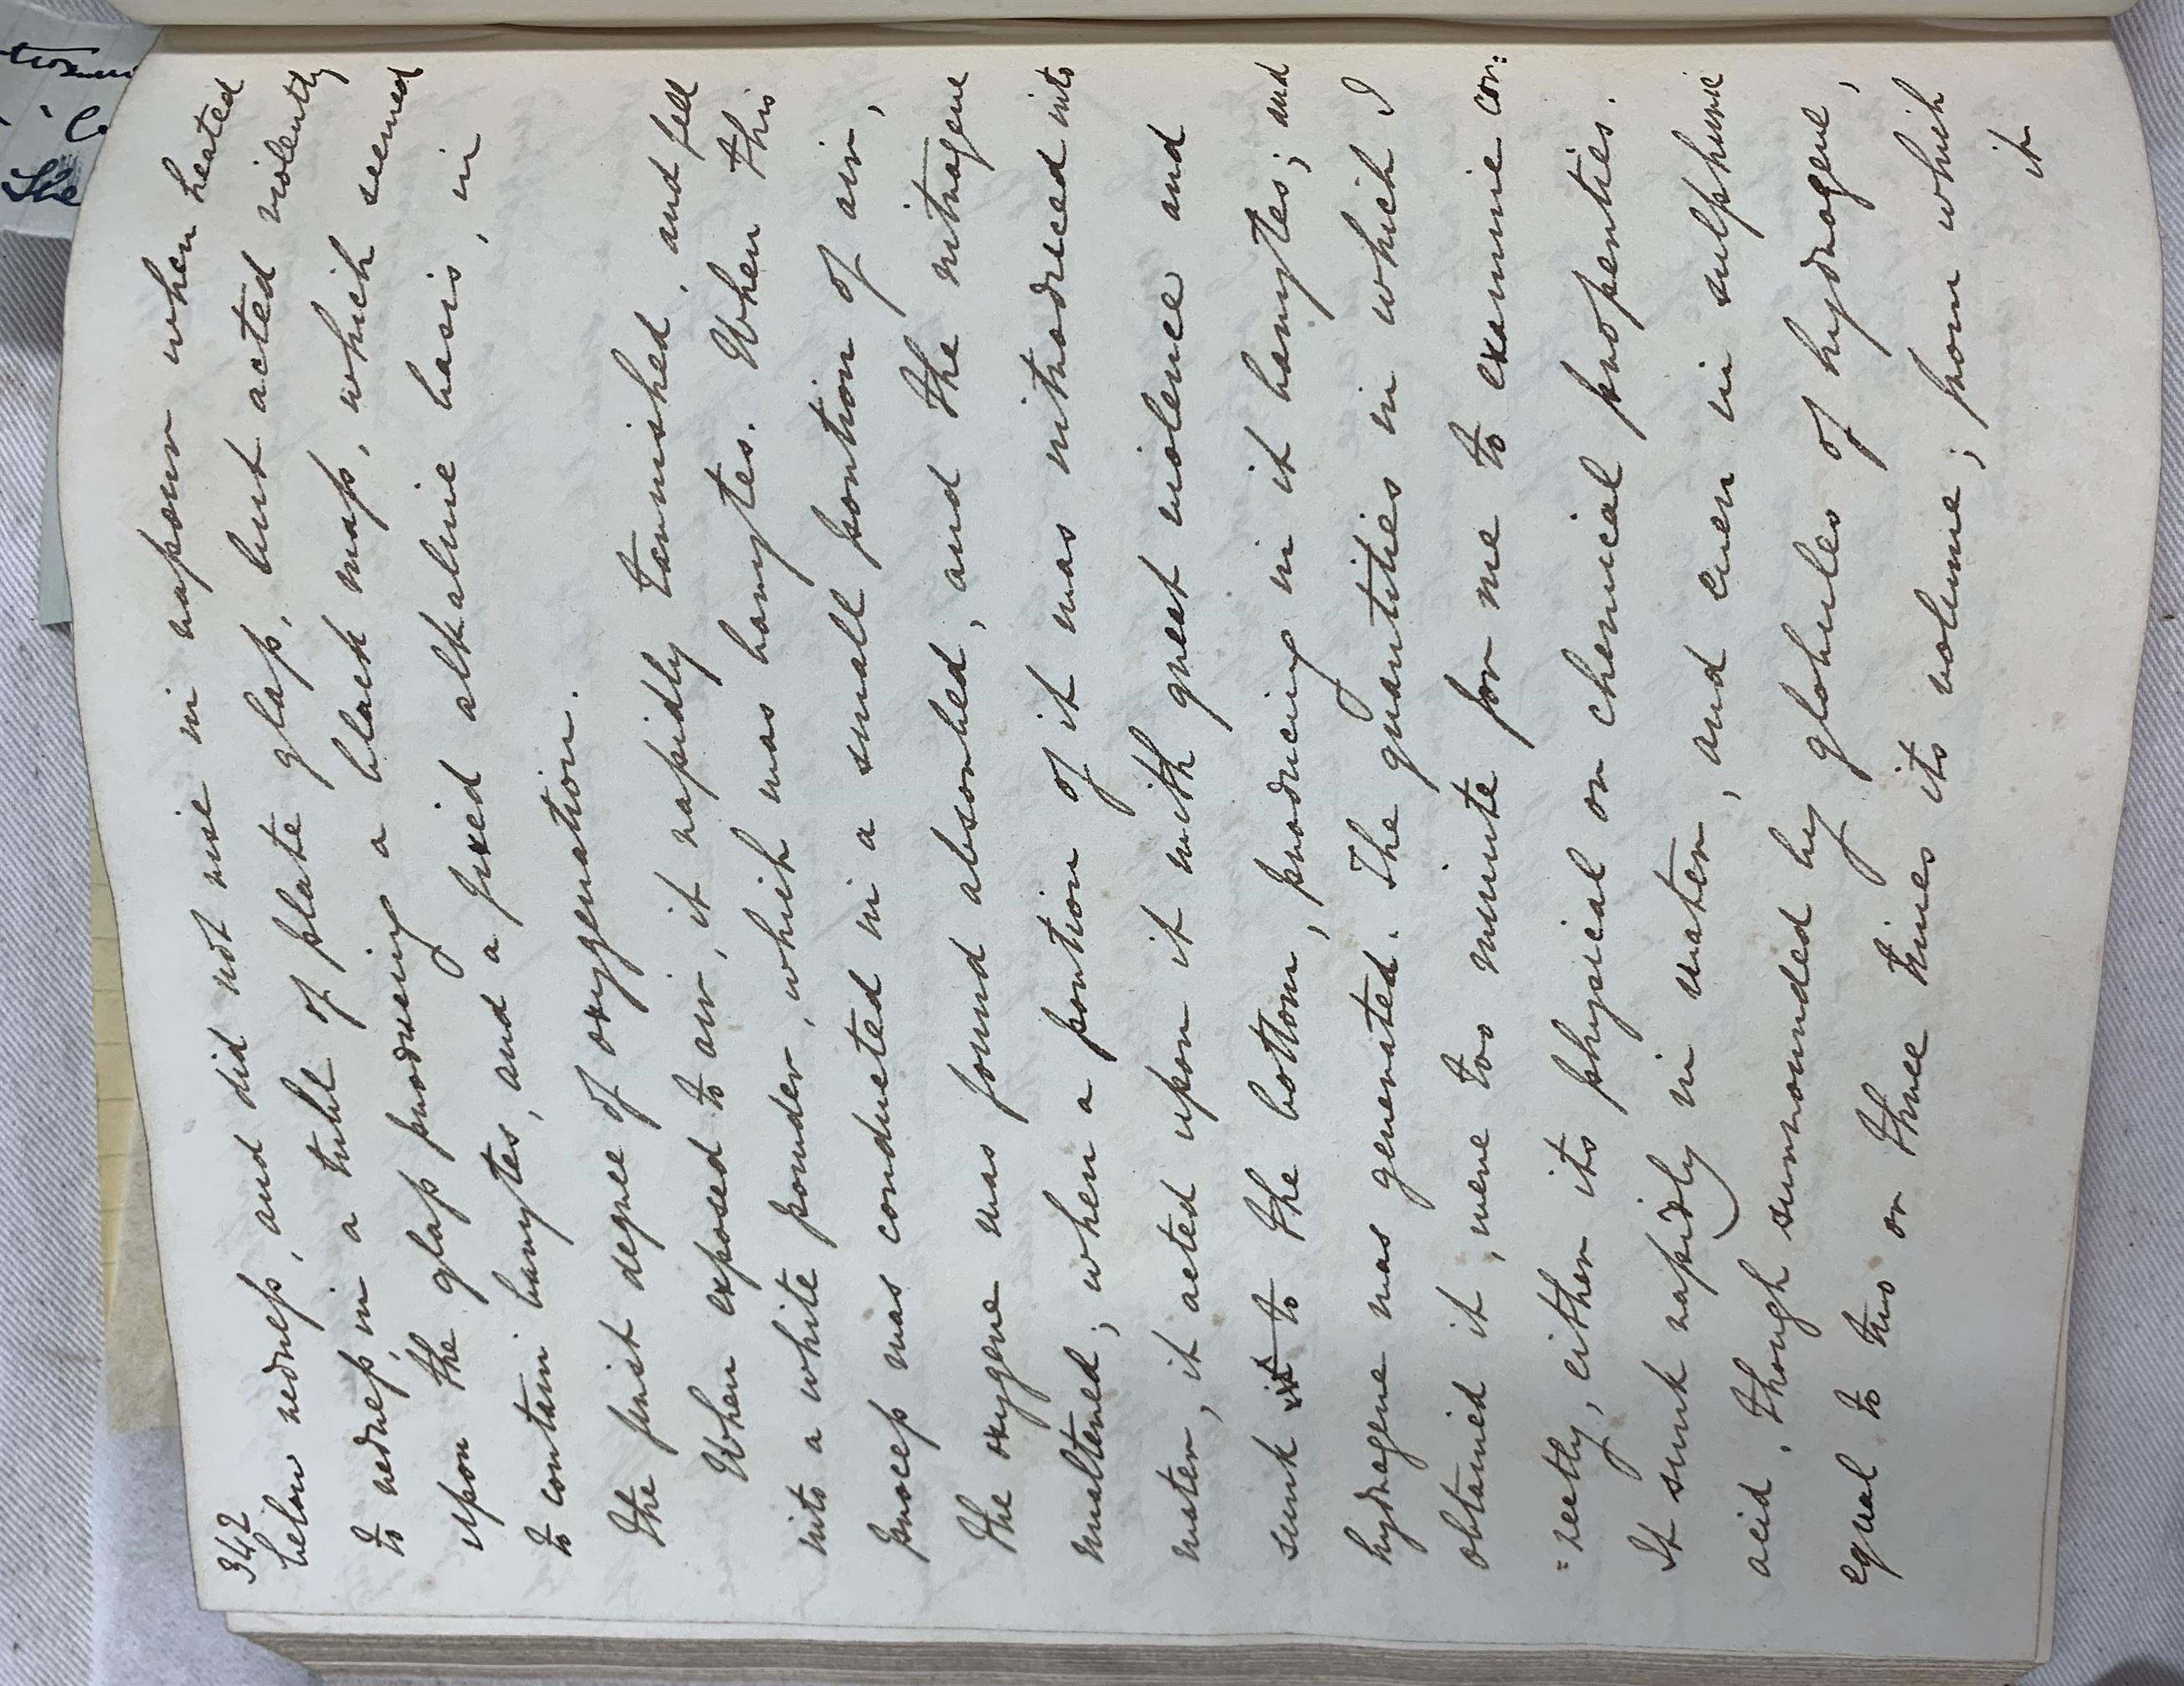 342
below redness, and did not rise in vapour when heated
to redness, in a tube of plate glass, but acted violently
upon the glass producing a black mass, which seemed
to contain barytes, and a fixed alkaline basis, in
the first degree of oxygenation.
When exposed to air, it rapidly tarnished, and fell
into a white powder, which was barytes. When this
process was conducted in a small portion of air,
the oxygene was found absorbed, and the nitrogene
unaltered; when a portion of it was introduced into
water, it acted upon it with great violence and
sunk it to the bottom, producing in it barytes; and
hydrogene was generated. The quantities in which I
obtained it, were too minute for me to examine cor:
=rectly, either its physical or chemical properties.
It sunk rapidly in water, and even in sulphuric
acid, though surrounded by globules of hydrogene,
equal to two or three times its volume; from which
it
the